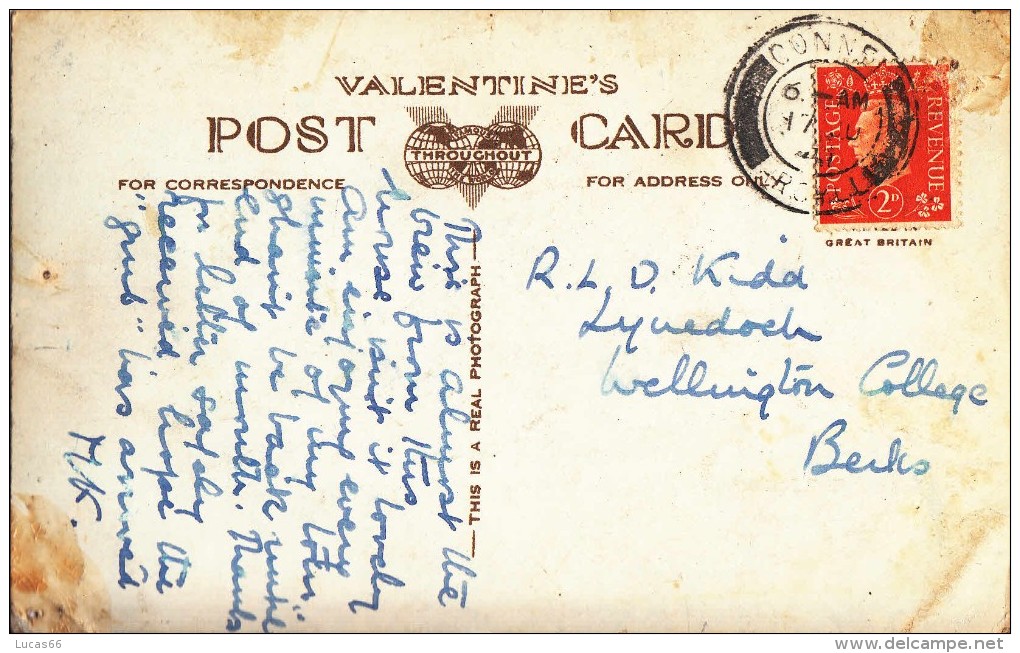 VALENTINE'S
POST CARD
THROUGHOUT
FOR CORRESPONDENCE
FOR ADDRESS ON
CONNE
6 AM
17 AU
41
POSTAGE
REVENUE
2D
GREAT BRITAIN
THIS IS A REAL PHOTOGRAPH
This is almost the
view from this
house isn't it lovely
Am enjoying every
minute of my "
shan't be back until
end of month. Thanks
for letter
received hope the
"grub" has arrived
M.K.
R.L.D. Kidd
Lynedoch
Wellington College
Berks
Lucas66
delcampe.net